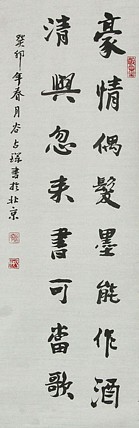 豪情偶發墨能作酒
清興忽来書可當歌
癸卯年春月谷占琛書於北京